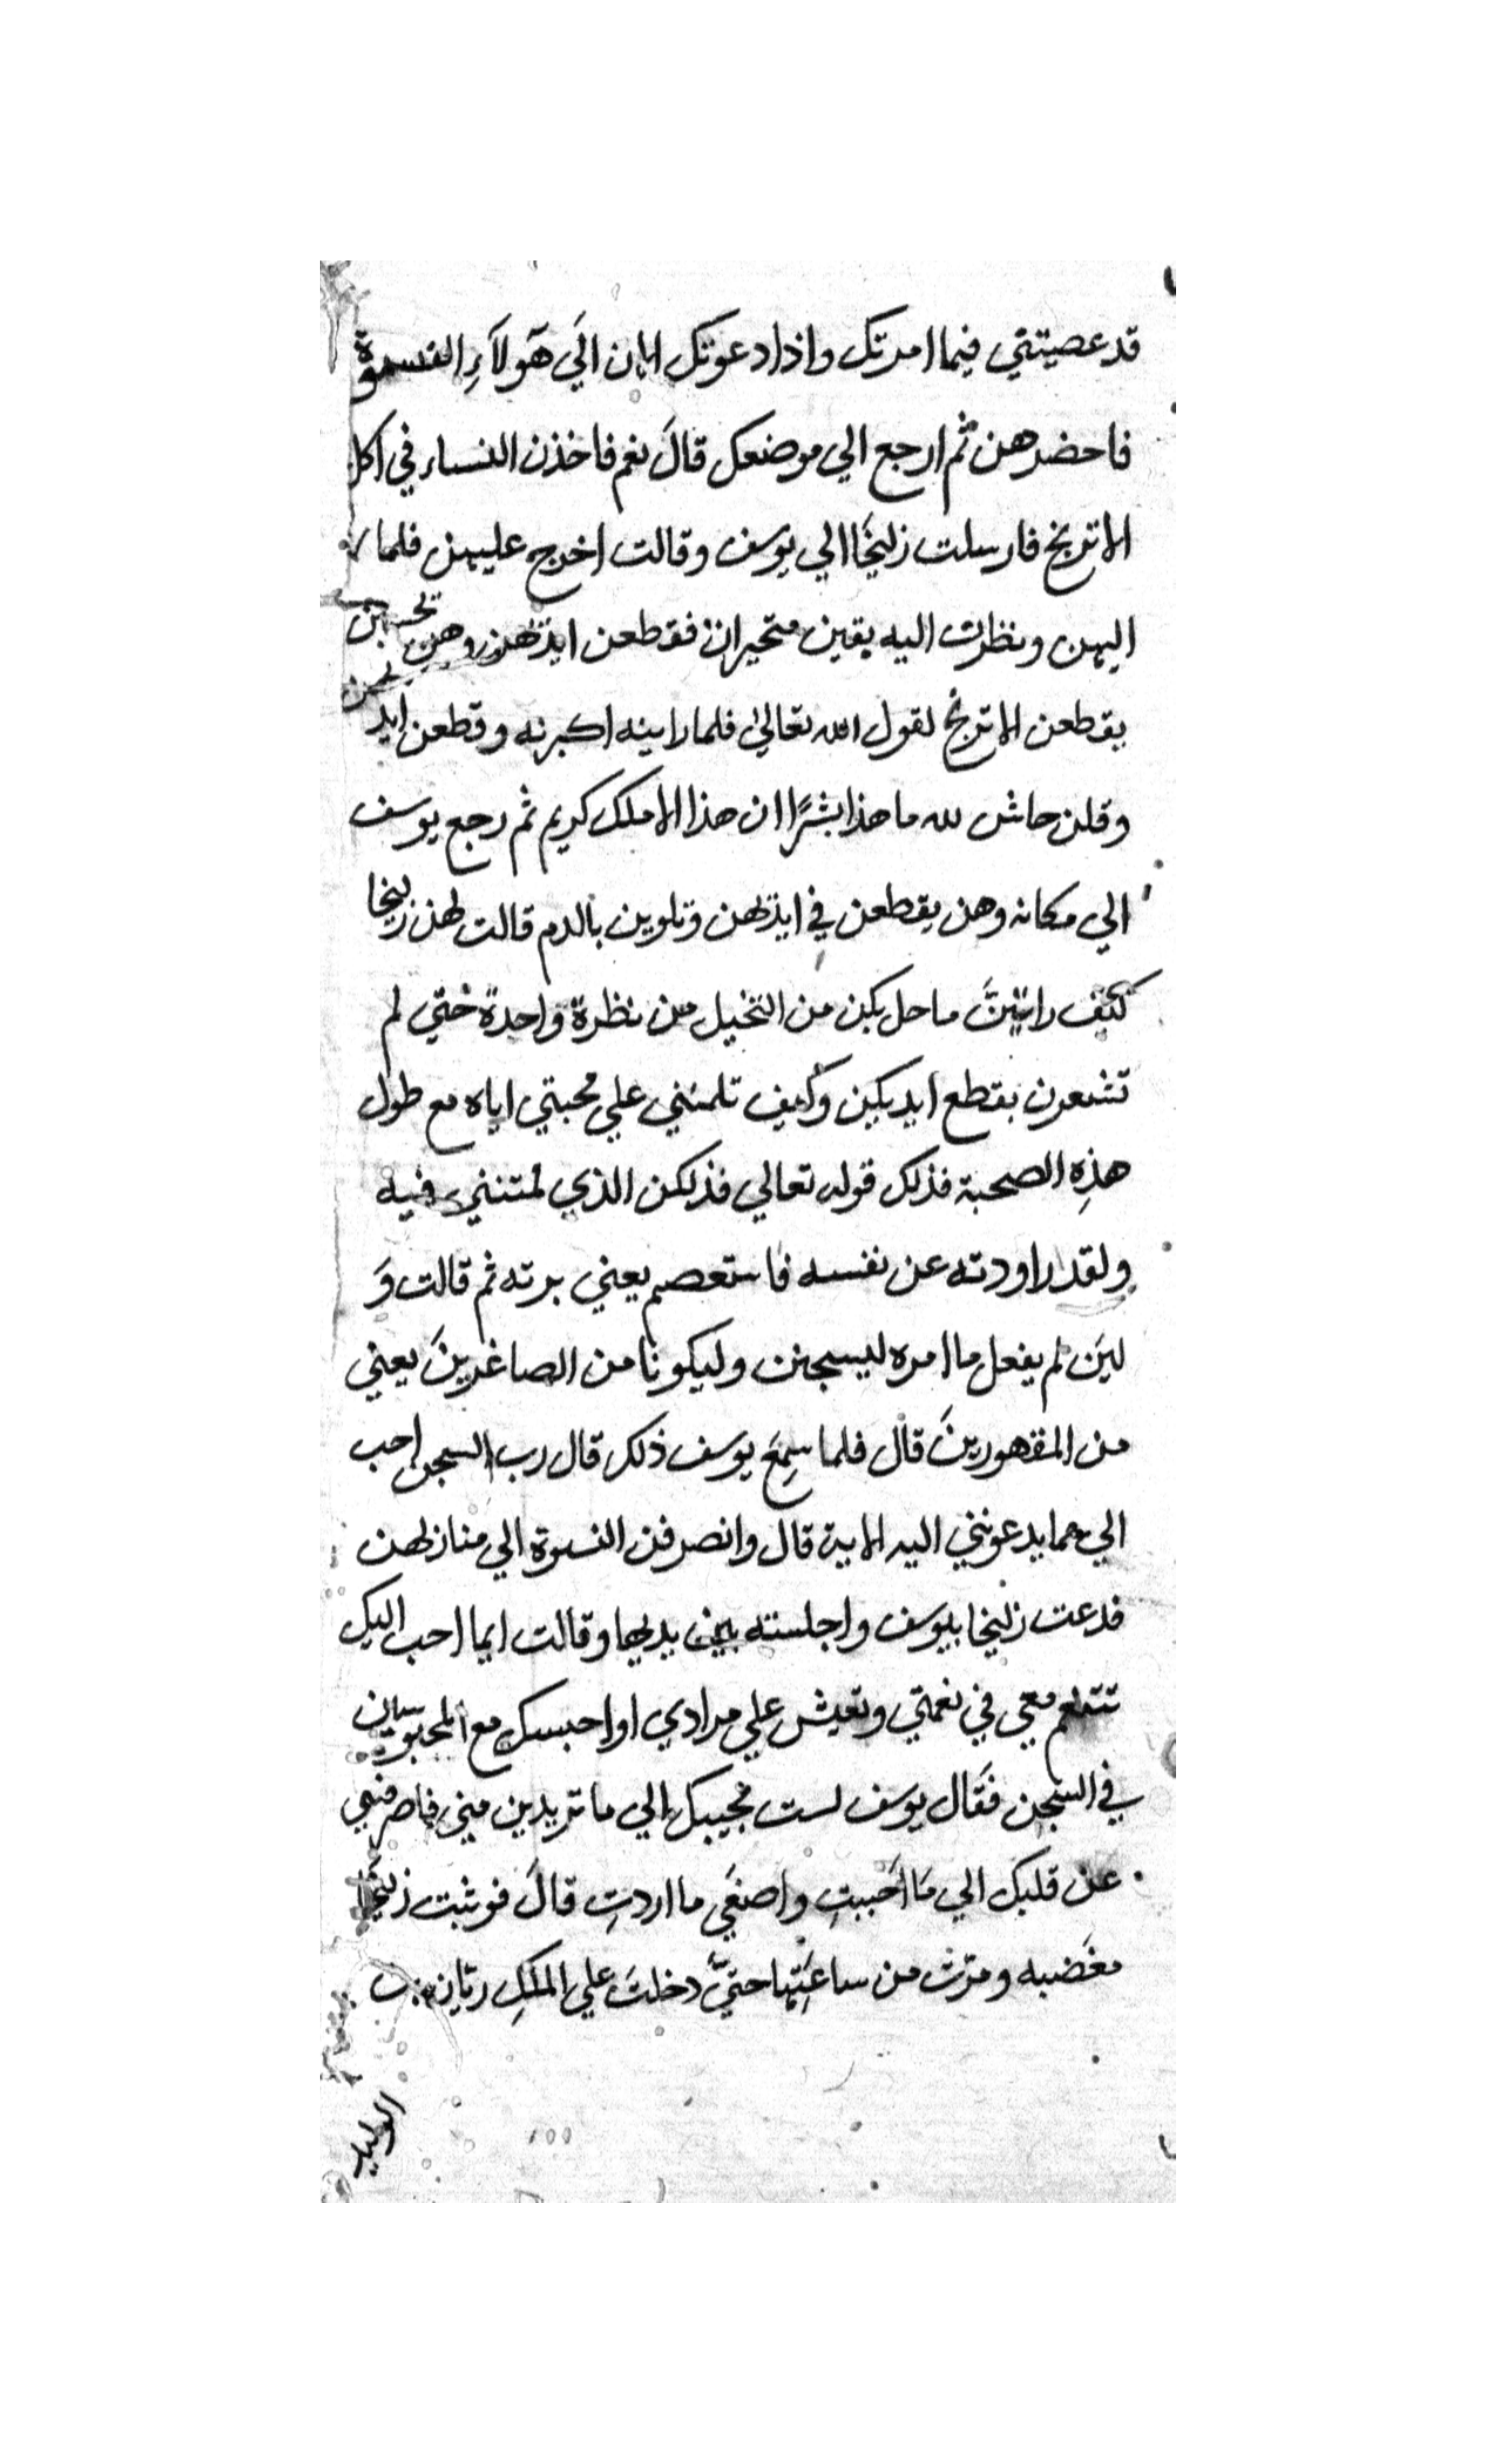 قد عصيتني فيما امرتك واذا دعوتك الان الَي هَولآءِ النسوة
فاحضرهن ثم ارجع الي موضعك قالَ نعم فاخذن النساء في اكل
الاترنج فارسلت زليخَا الي يوسف وقالت اخرج عليهن فلما
اليهن ونظرت اليه بقين متحيران فقطعن ايديهن وهن تحسبن
يقطعن الاترنج لقول الله تعالي فلما راينه اكبرنه وقطعن ايد
وقلن حاش لله ما هذا بشرًا ان هذا الا ملك كريم ثم رجع يوسف
الي مكانه وهن يقطعن في ايديهن وتلوين بالدم قالت لهن زليخا
كَيف راتينَّ ما حل بكن من التخيل من نظرة واحدة حَتي لم
تشعرن بقطع ايديكن وكَيف تلمنني علي محبتي اياه مع طول
هذِهِ الصحبة فذلك قوله تعالي فذلكن الذي لمتنني فيه
ولقد راودته عن نفسه فاستعصم يعني برته ثم قالت وَ
لين لم يفعل ما امره ليسجنن وليكونا من الصاغرينَ يعني
من المقهورينَ قال فلما سِمعَ يوسف ذلك قال رب السجن احب
الي مما يدعونني اليه الاية قال وانصرفن النسوة الي منازلهن
فدعت زليخا بيوسف واجلسته بين يديها وقالت ايما احب اليك
تتنعم معي في نعمتي وتعيش علي مرادي او احبسك مع المحبوسين
في السجن فقَال يوسف لست مجيبك الي ما تريدين مني فاصرفيني
عن قلبك الي مَا احَببتِ واصنعَي ما اردتِ قالَ فوثبت زليخَا
مغَضبه ومرّت من ساعَتِها حتيّ دخلتَ علي الملكِ ريان بن
الوليد